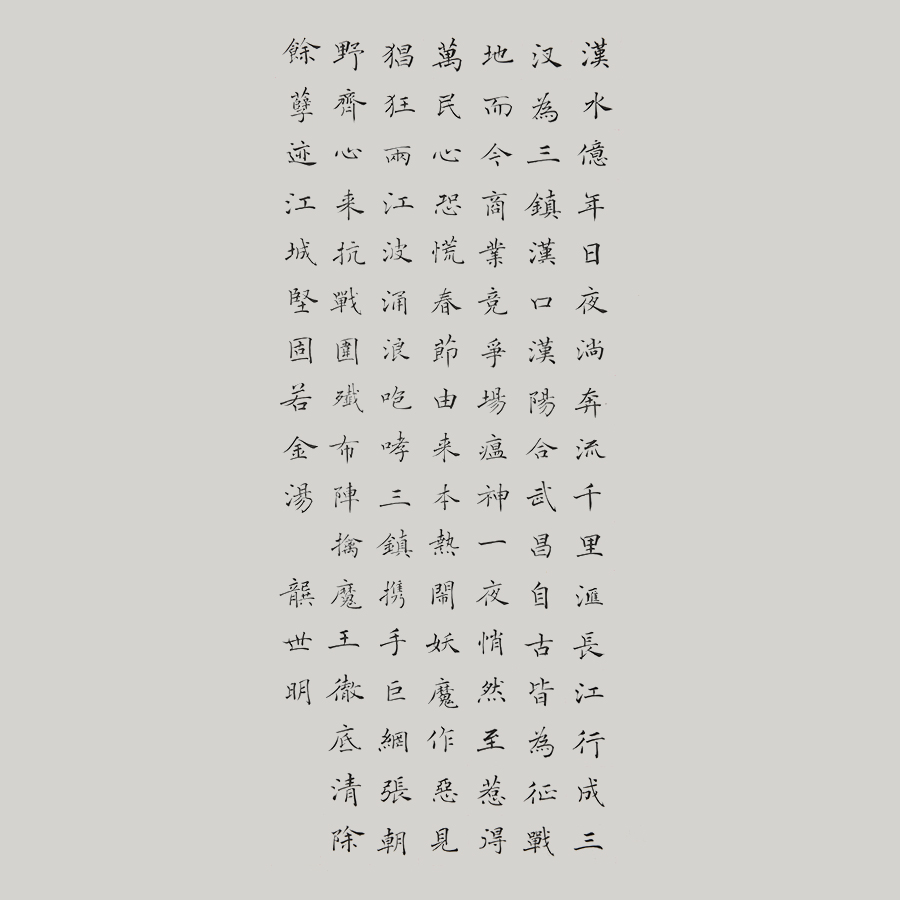 漢水億年日夜淌奔流千里滙長江行成三
汊為三鎮漢口漢陽合武昌自古皆為征戰
地而今商業竞爭場瘟神一夜悄然至惹得
萬民心恐慌春節由来本熱鬧妖魔作惡見
猖狂兩江波涌浪咆哮三鎮携手巨網張朝
野齊心来抗戰圍殲布陣擒魔王徹底清除
餘孽迹江城堅固若金湯 龔世明